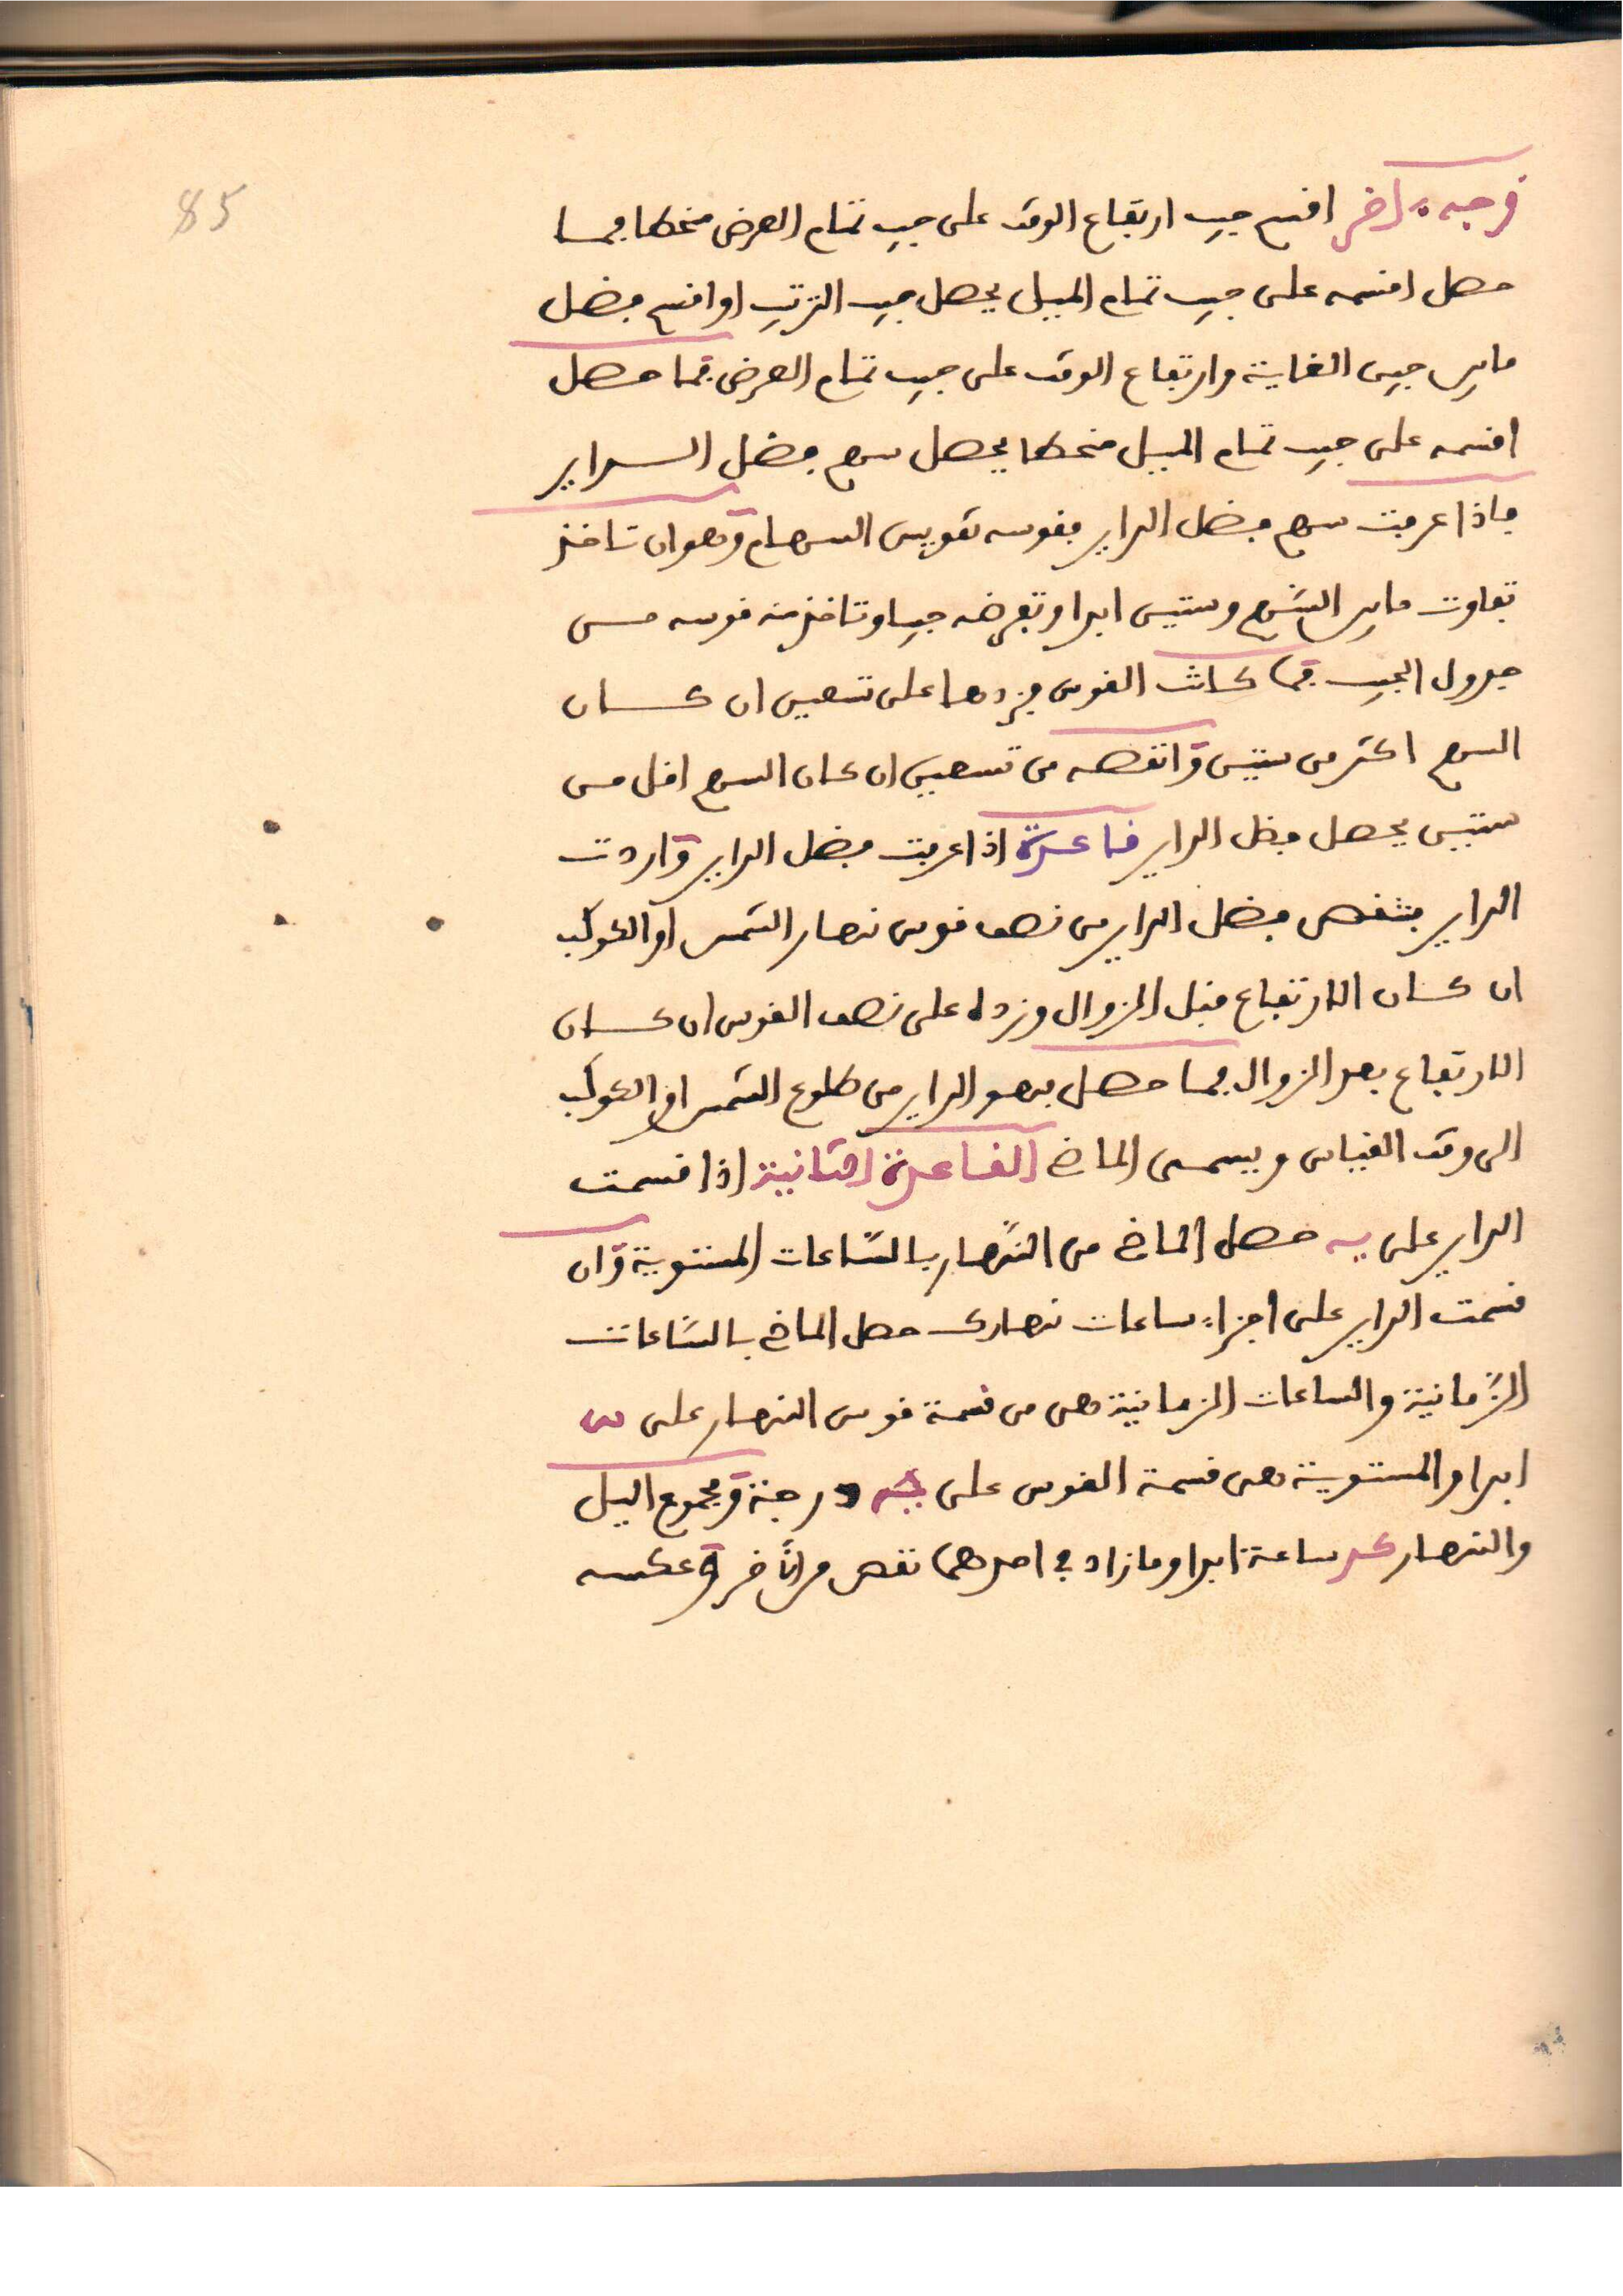 85
وجه اخر اقسم جيب ارتفاع الوقت على جيب تمام العرض منحطا فما
حصل اقسمه على جيب تمام الميل يحصل جيب الترتيب او اقسم فضل
مابين جيبى الغاية وارتفاع الوقت على جيب تمام العرض فما حصل
اقسمه على جيب تمام الميل منحطا يحصل سهم فضل الـداير
فاذا عرفت سهم فضل الداير فقوسه تقويس السهام وهو ان تاخذ
تفاوت مابين السهم وستين ابدا وتفرضه جيبا وتاخذ منه قوسه من
جدول الجيب فما كانت القوس فزدها على تسعين ان كان
السهم اكثر من ستين وانقصه من تسعين ان كان السهم اقل من
ستين يحصل فضل الداير قاعدة اذا عرفت فضل الداير واردت
الداير فتنقص فضل الداير من نصف قوس نهار الشمس او الكوكب
ان كان الارتفاع قبل الزوال وزده على نصف القوس ان كان
الارتفاع بعد الزوال فما حصل فهو الداير من طلوع الشمس او الكوكب
الى وقت القياس ويسمى الماضي القاعدة الثانية اذا قسمت
الداير على يه حصل الماضي من النهار بالساعات المستوية وان
قسمت الداير على اجزاء ساعات نهارك حصل الماضي بالساعات
الزمانية والساعات الزمانية هى من قسمة قوس النهار على يب
ابدا والمستوية هى قسمة القوس على يه درجة ومجموع اليل
والنهار كد ساعة ابدا وما زاد في احدهما نقص من الآخر وعكسه